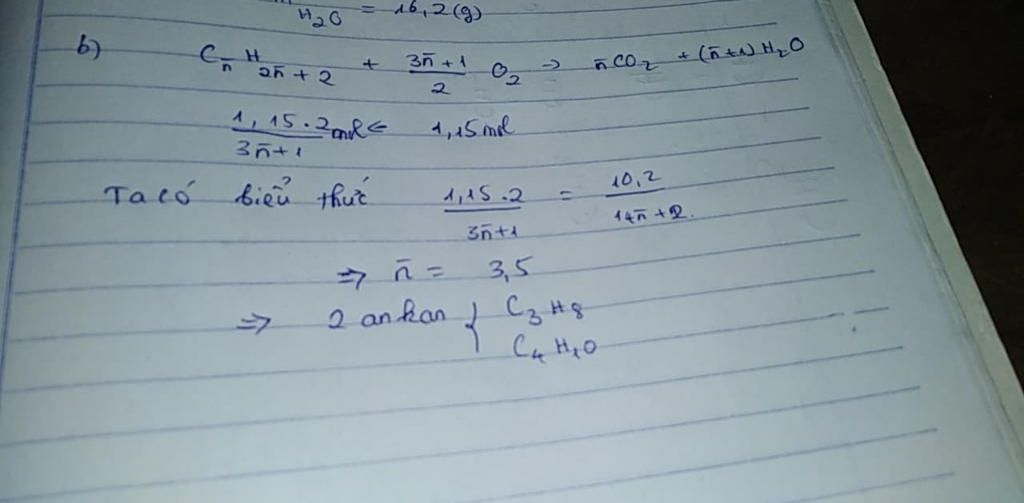 H₂O = 16,2(g)
b) C_n̄ H_2n̄+2 + (3n̄+1)/2 O₂ → n̄CO₂ + (n̄+1)H₂O
(1,15.2)/(3n̄+1) mol ← 1,15mol
Ta có biểu thức (1,15.2)/(3n̄+1) = (10,2)/(14n̄+2)
⇒ n̄ = 3,5
⇒ 2 ankan { C₃H₈
C₄H₁₀